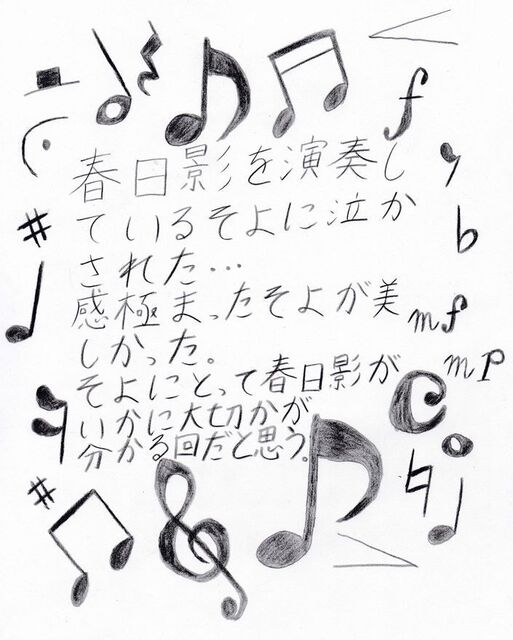 春日影を演奏し
ているそよに泣か
された…
感極まったそよが美
しかった。
そよにとって春日影が
いかに大切かが
分かる回だと思う。
f
mf
mp